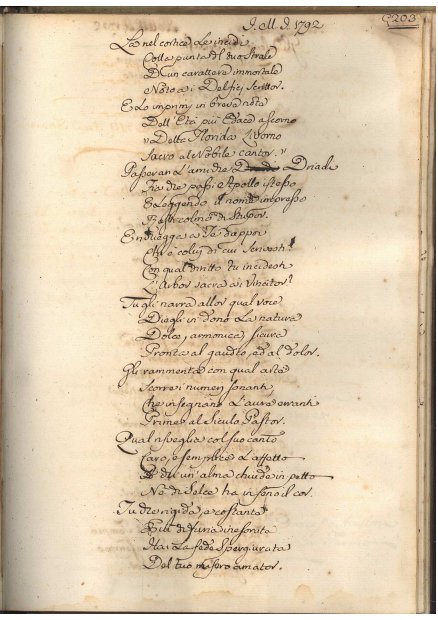 G. M. D. 1792
C203
La nel cortice Le incidi
Colla punta d'l tuo strale
D'un carattere immortale
Noto ai Delfici scrittor.
E Lo imprimi in breve nota
Dell' Età più Edace a scorno
"Della Florida Livorno
Sacro al Nobile cantor."
Passeran L'amadre Driadi
Tra dre passi Apollo istesso
E Leggendo il nome impresso
Resta colmo di stupor.
E chi è colui di cui scrivesti?
Con qual dritto tu incidesti
L'Arbor sacra ai Vincitor?
Tu gli narra allor qual voce
Diegli in dono La natura
Dolce, armonica, sicura
Pronta al gaudio, ed al dolor.
Gli rammenta con qual arte
Scorre i numeri sonanti
Che insegnaro L'aure erranti
Prime al Siculo Pastor.
Qual risveglia col suo canto
Caro, e semplice L'affetto
di un' alma chiude in petto
Nò di Selce ha in seno il cor.
Tu che rigida, e costante
Hai La fede Spergiurata
Del tuo misero amator.